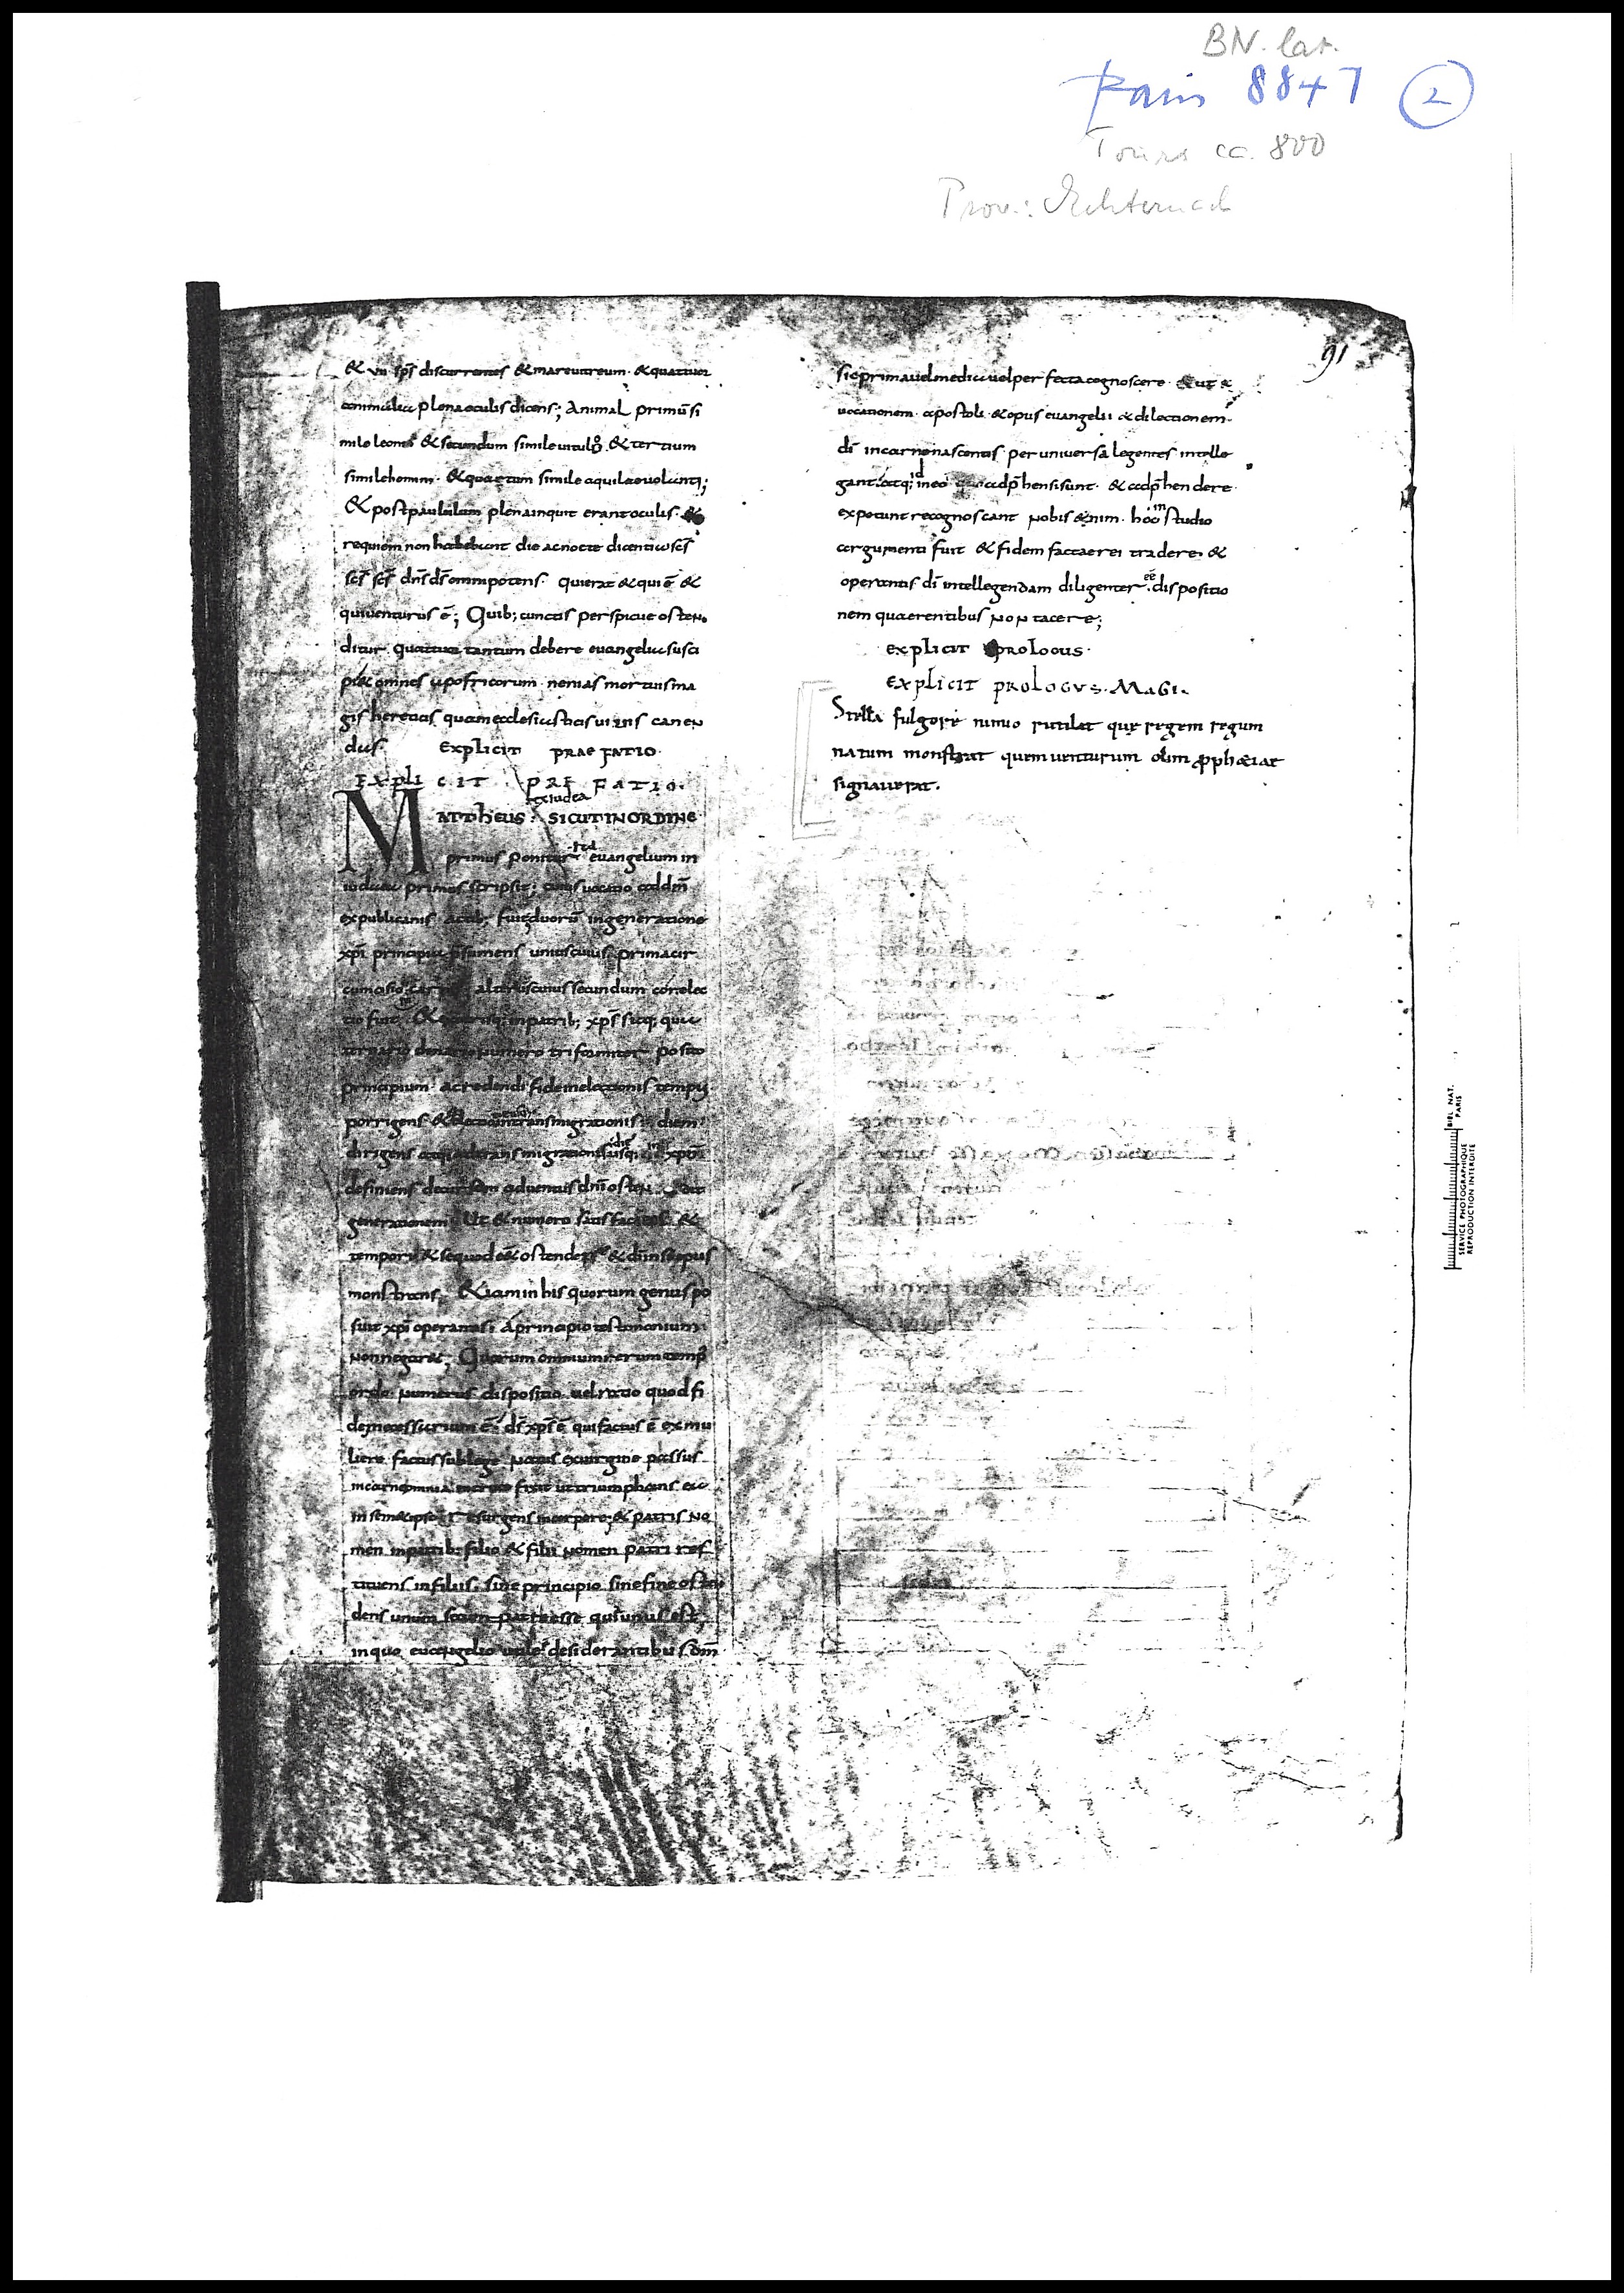 BN. lat.
Paris 8847 2
Tours ca. 800
Prov.: Echternach
91
& vii sp̅s discurrentes & mare vitreum · & quattuor
animalia plena oculis dicens; Animal primū si
mile leonis & secundum simile vitulo & tertium
simile homini · & quartum simile aquilae volanti;
& post paululum plena inquit erant oculis · &
requiem non habebant die ac nocte dicentia sc̅s
sc̅s sc̅s dn̅s ds̅ omnipotens · qui erat & qui ē &
qui venturus ē; Quib; cunctis perspicue osten
ditur quattuor tantum debere evangelia susci
pi & omnes apofricorum nenias mortuis ma
gis hereticis quam ecclesiasticis vivis canen
das Explicit praefatio ·
EXPLICIT PREFATIO ·
ex iudea
MATTHEUS · SICUT IN ORDINE
primus ponitur ita evangelium in
iudaea primus scripsit; cuius vocatio ad dm̅
ex publicanis actib; fuit duorū in generatione
xp̅i principia p̅sumens unius cuius prima cir
cumcisio carnis alterius cuius secundum cor elec
tio fuit & utrisq; in patrib; xp̅s sicq; qua
ternario denario numero triformiter posito
principium a credendi fidem electionis tempus
porrigens & transmigrationis diem
dirigens transmigrationis usq; xp̅m
definiens decursam adventus dn̅i osten
generationem Ut & numero satisfaciens &
temporis & se quod & ostenderet & di̅ in se opus
monstrans & iam in his quorum genus po
suit xp̅i operantis a principio testimonium
non negaret; Quorum omnium rerum temp
ordo numerus dispositio vel ratio quod fi
dei necessarium ē ds̅ xp̅s ē qui factus ē ex mu
liere factus sub lege natus ex virgine passus
in carne omnia in cruce fixit ut triumphans ea
in semetipso resurgens in corpore & patris no
men in patrib; filio & filii nomen patri res
tituens in filiis · sine principio sine fine osten
dens unum se cum patre esse qui unus est;
in quo evangelio utile desiderantibus dm̅
sic prima vel media vel perfecta cognoscere · & ut &
vocationem apostoli & opus evangelii & dilectionem
di̅ in carne nascentis per universa legentes intelle
gant atq; id in eo quo adp̅hensi sunt & adp̅hendere
expetunt recognoscant Nobis enim in hoc studio
argumenti fuit & fidem factae rei tradere &
operantis di̅ intellegendam diligenter eē dispositio
nem quaerentibus non tacere;
explicit prologus ·
EXPLICIT PROLOGVS · MAGI ·
Stella fulgore nimio rutilat quę regem regum
natum monstrat quem venturum olim p̅phetiae
signaverat ·
BIBL. NAT.
PARIS
SERVICE PHOTOGRAPHIQUE
REPRODUCTION INTERDITE